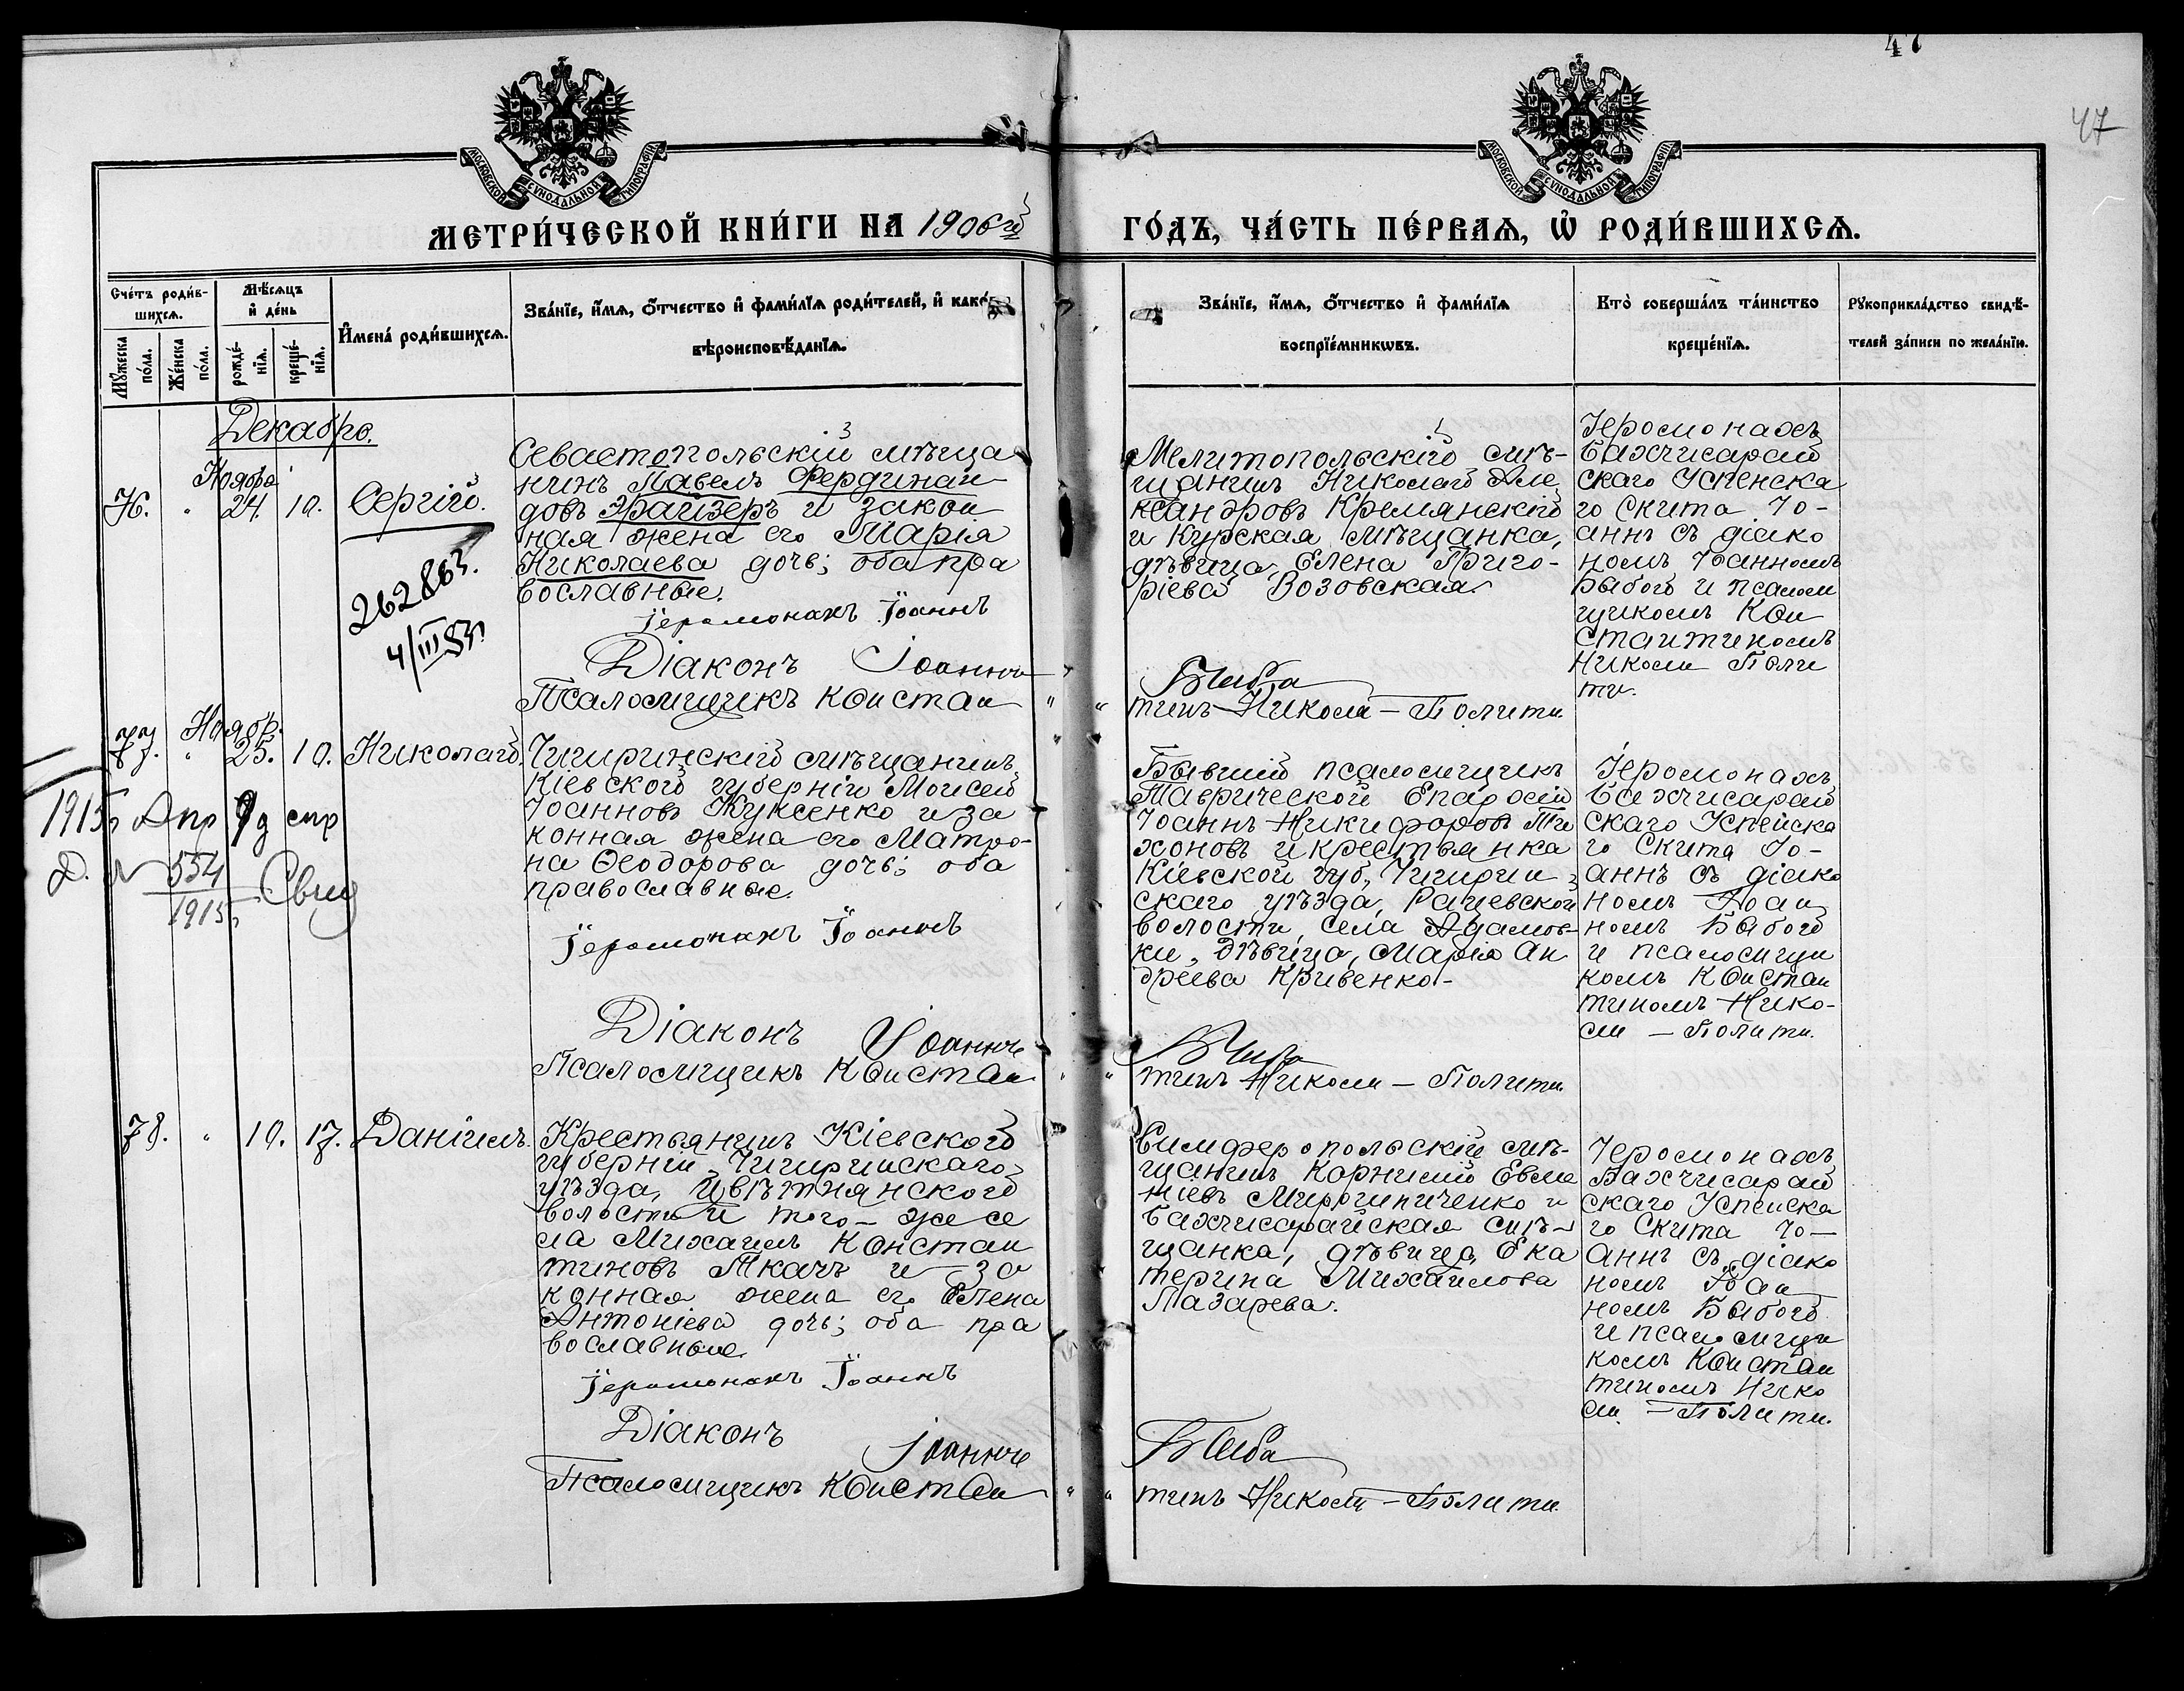 47
47
МОСКОВСКОЙ СѴНОДАЛЬНОЙ ТИПОГРАФІИ
МОСКОВСКОЙ СѴНОДАЛЬНОЙ ТИПОГРАФІИ
МЕТРИ́ЧЕСКОЙ КНИ́ГИ НА 1906й
ГО́ДЪ, ЧА́СТЬ ПЕ́РВАЯ, Ѡ҆ РОДИ́ВШИХСЯ.
Сче́тъ роди́в-
шихся.
Му́жеска по́ла.
Же́нска по́ла.
Мѣ́сяцъ
и҆ де́нь
рожде́-
нїя.
креще́-
нїя.
И҆мена̀ роди́вшихся.
Зва́нїе, и҆́мя, ѻ҆́тчество и҆ фами́лїя роди́телей, и҆ како́
вѣроисповѣ́данїя.
Зва́нїе, и҆́мя, ѻ҆́тчество и҆ фами́лїя
воспрїе́мникѡвъ.
Кто̀ соверша́лъ та́инство
креще́нїя.
Рꙋкоприкла́дство свидѣ́-
телей за́писи по жела́нїю.
Декабрь.
Ноября
76. " 24. 10. Сергій.
262863.
4/III 53г
Севастопольскій мѣща
нинъ Павелъ Фердинан
довъ Фрайзеръ и закон
ная жена его Марія
Николаева дочь; оба пра
вославные.
Іеромонахъ Іоаннъ
Діаконъ Іоаннъ
Псаломщикъ Констан
Мелитопольскій мѣ-
щанинъ Николай Але
ксандровъ Кремянскій
и Курская мѣщанка,
дѣвица Елена Григо-
ріева Возовская.
Быба
тинъ Николи-Полити.
Іеромонахъ
Бахчисарай
скаго Успенска
го Скита Іо-
аннъ съ діако
номъ Іоанномъ
Быбой и псалом
щикомъ Кон
стантиномъ
Николи Поли
ти.
Ноябр.
77. " 25. 10. Николай.
1915г Апр 9д
№ 554
1915г
Свид
Чигиринскій мѣщанинъ
Кіевской губерніи Моисей
Іоанновъ Куксенко и за
конная жена его Матро-
на Ѳеодорова дочь; оба
православные.
Іеромонахъ Іоаннъ
Діаконъ Іоаннъ
Псаломщикъ Констан
Бывшій псаломщикъ
Таврической Епархіи
Іоаннъ Никифоровъ Ти
хоновъ и крестьянка
Кіевской губ., Чигирин
скаго уѣзда, Рацевской
волости, села Адамов-
ки, дѣвица, Марія Ан
дреева Кривенко-
Быба
тинъ Николи-Полити.
Іеромонахъ
Бахчисарай
скаго Успенска
го Скита Іо-
аннъ съ діако
номъ Іоан
номъ Быбой
и псаломщи
комъ Констан
тиномъ Нико-
ли - Полити.
78. " 10. 17. Даніилъ.
Крестьянинъ Кіевской
губерніи, Чигиринскаго
уѣзда, Цвѣтнянской
волости и того-же се
ла Михаилъ Констан
тиновъ Ткачъ и за
конная жена его Елена
Антоніева дочь; оба пра
вославные.
Іеромонахъ Іоаннъ
Діаконъ Іоаннъ
Псаломщикъ Констан
Симферопольскій мѣ-
щанинъ Корнилій Евме
ніевъ и
Бахчисарайская мѣ-
щанка, дѣвица, Ека
терина Михайлова
Лазарева.
Быба
тинъ Николи-Полити.
Іеромонахъ
Бахчисарай
скаго Успенска
го Скита Іо-
аннъ съ діако
номъ Іоан
номъ Быбой
и псаломщи
комъ Констан
тиномъ Нико
ли - Полити.